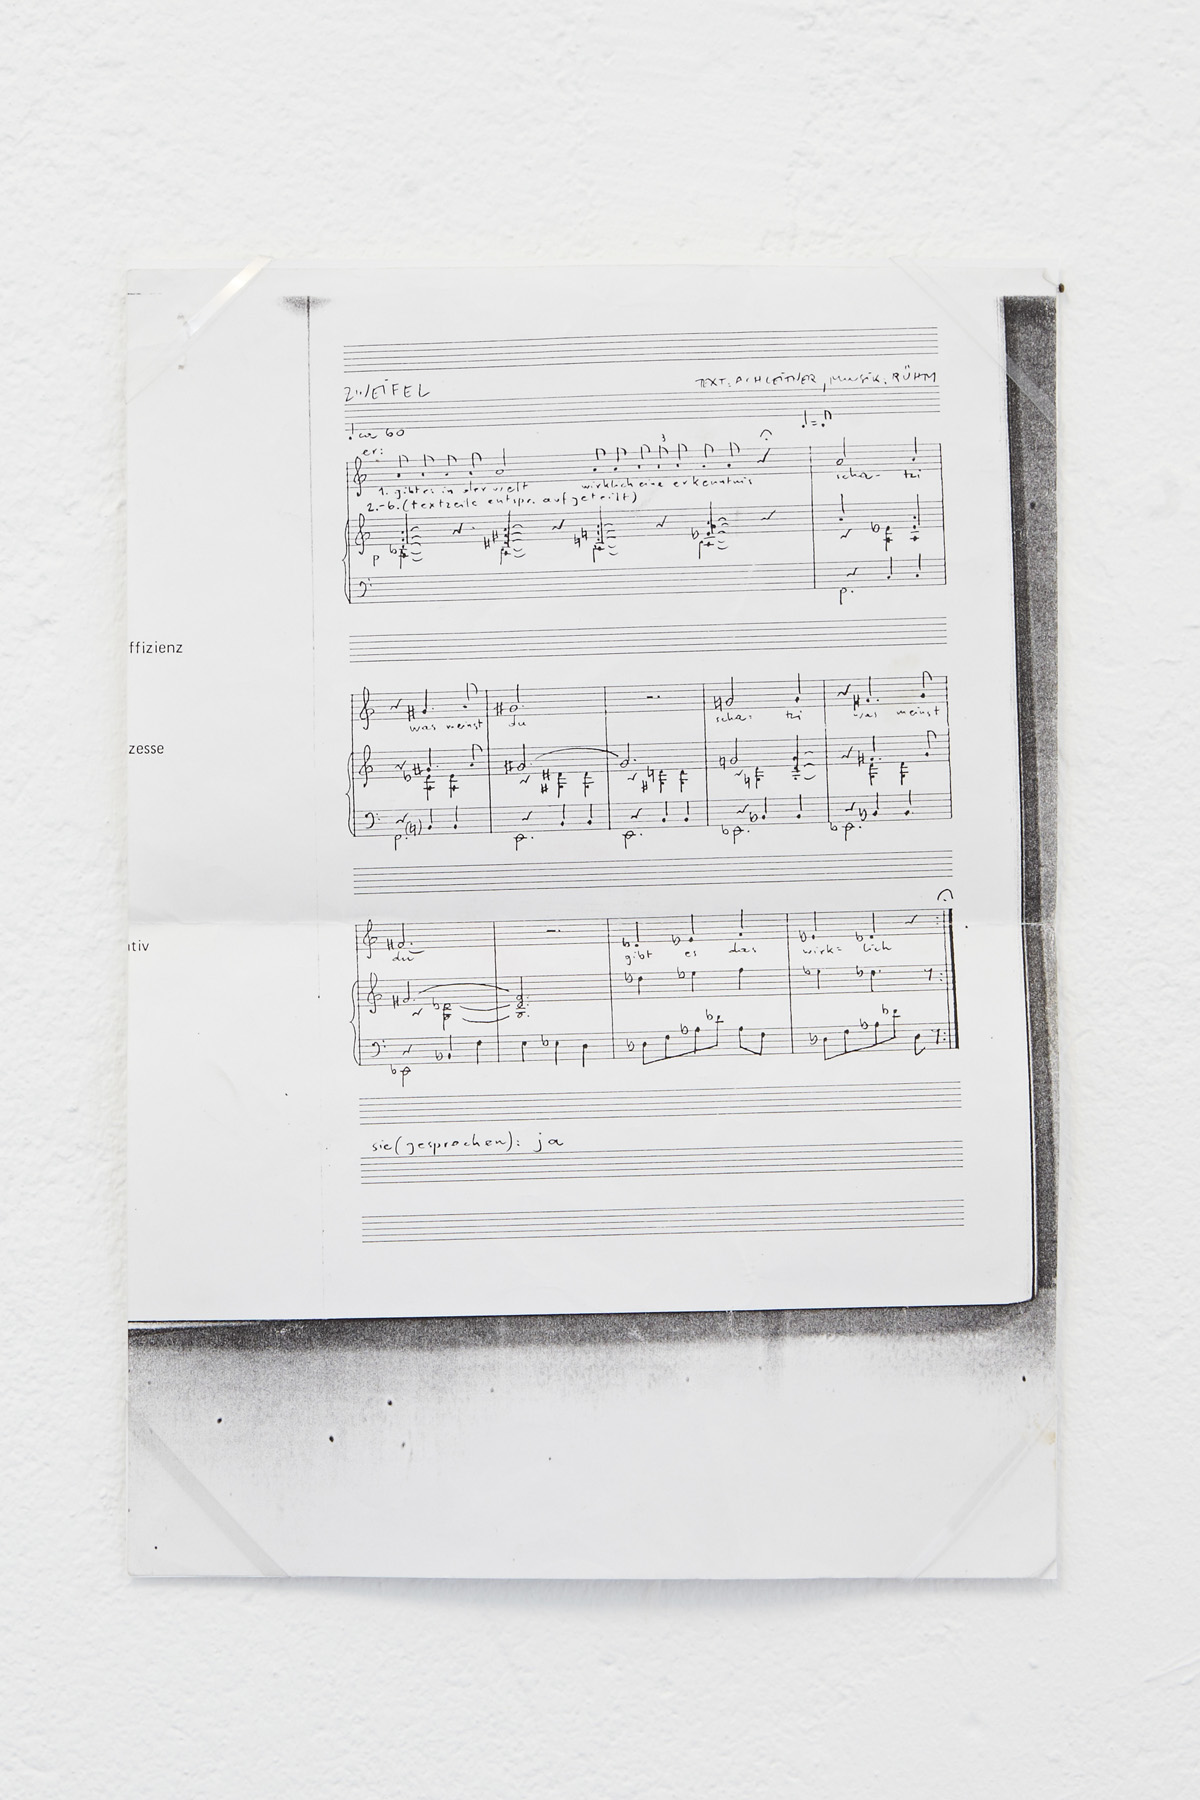 ZWEIFEL
TEXT: ACHLEITNER, MUSIK: RÜHM
ca 60
er:
1. gibt es in der welt wirklich eine erkenntnis scha- tzi
2.-6. (textzeile entspr. aufgeteilt)
3
p
ffizienz
was meinst du scha- tzi was meinst
zesse
ativ
du gibt es das wirk- lich
sie (gesprochen): ja